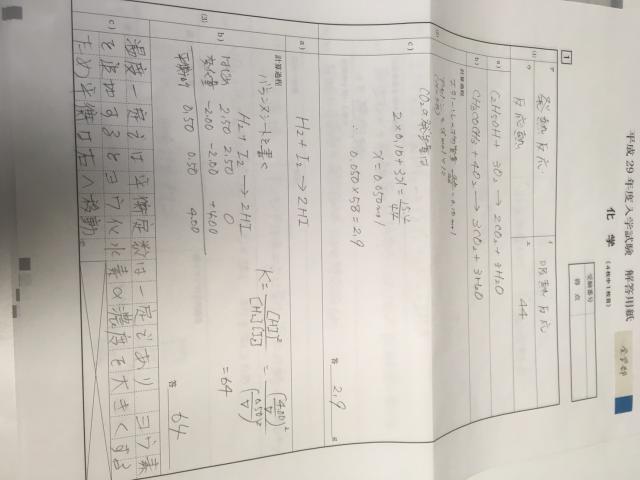 平成 29 年度入学試験 解答用紙
化 学
(4枚中1枚目)
全学部
受験番号
得 点
1
(1)
ア 発熱反応
イ 吸熱反応
ウ 反応熱
エ 44
(2)
a) C₂H₅OH + 3O₂ → 2CO₂ + 3H₂O
b) CH₃COCH₃ + 4O₂ → 3CO₂ + 3H₂O
計算過程
c)
CO₂の発生量は
2×0.10+3x=
x=0.050mol
∴ 0.050×58=2.9
答 2.9 g
(3)
a) H₂ + I₂ → 2HI
b)
計算過程
バランスシートを書く
H₂ + I₂ → 2HI
はじめ 2.50 2.50 0
変化量 -2.00 -2.00 +4.00
平衡時 0.50 0.50 4.00
K = [HI]² / [H₂][I₂] = (4.00/V)² / (0.50/V)² = 64
答 64
c)
温度一定では平衡定数は一定であり、ヨウ素
を追加するとヨウ化水素の濃度を大きくする
ため平衡は右へ移動。